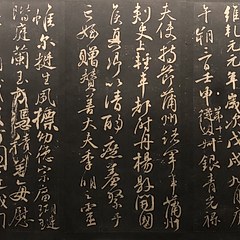 維乾元元年歲次戊戌
午朔三日壬申第十三叔銀青光祿
夫使持節蒲州諸軍事蒲州
刺史上輕車都尉丹楊縣開國
侯真卿以清酌庶羞祭于
亡姪贈贊善大夫季明之靈
惟爾挺生夙標幼德宗廟瑚璉
階庭蘭玉方憑積善每慰